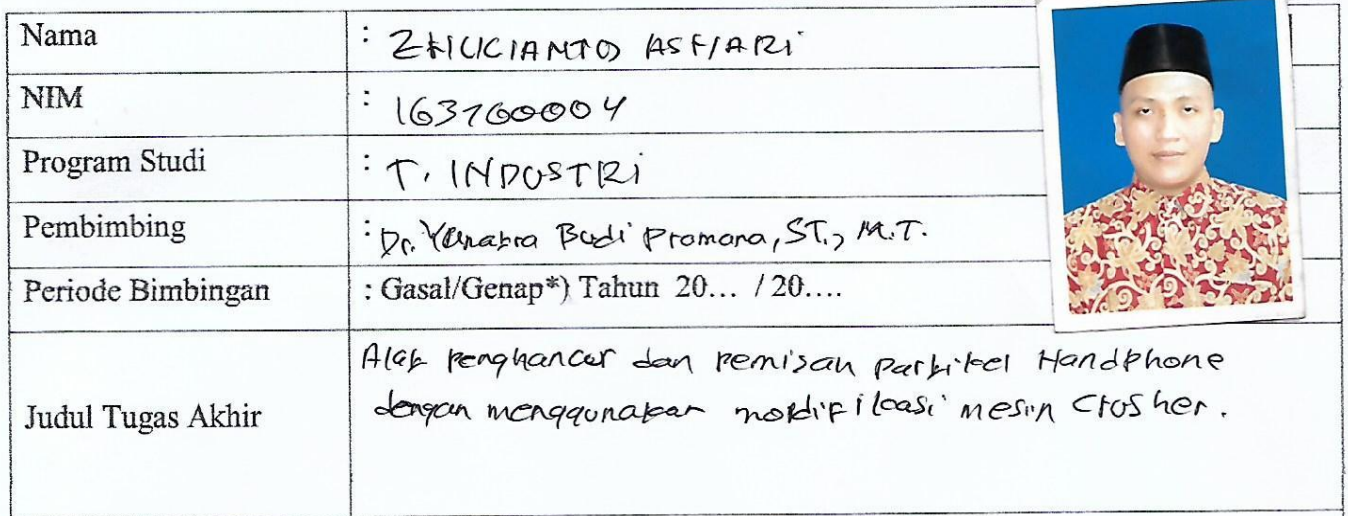 Nama : ZHUCIANTO ASFIARI
NIM : 163760004
Program Studi : T. INDUSTRI
Pembimbing : Dr. Yanatra Budi Pramana, ST., M.T.
Periode Bimbingan : Gasal/Genap*) Tahun 20... / 20....
Judul Tugas Akhir Alat penghancur dan pemisah partikel Handphone
dengan menggunakan modifikasi mesin Crusher.